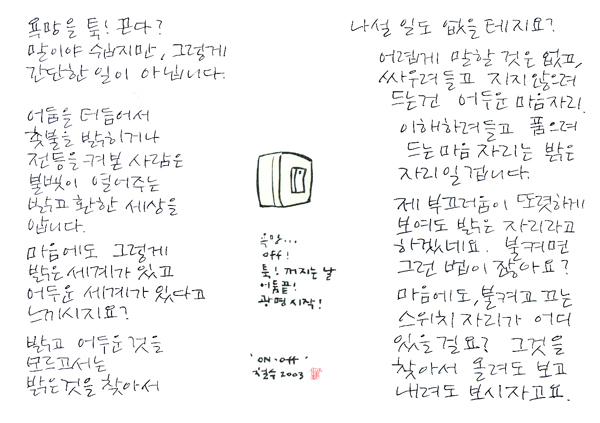 욕망을 툭! 끈다?
말이야 쉽지만, 그렇게
간단한 일이 아닙니다.
어둠을 더듬어서
촛불을 밝히거나
전등을 켜본 사람은
불빛이 열어주는
밝고 환한 세상을
압니다.
마음에도 그렇게
밝은 세계가 있고
어두운 세계가 있다고
느끼시지요?
밝고 어두운 것을
모르고서는
밝은 것을 찾아서
욕망...
off!
툭! 꺼지는 날
어둠끝!
광명시작!
'ON·Off'
철수 2003
나설 일도 없을 테지요?
어렵게 말할 것은 없고,
싸우려들고 지지않으려
드는건 어두운 마음자리.
이해하려들고 품으려
드는마음 자리는 밝은
자리일 겁니다.
제 부끄러움이 또렷하게
보여도 밝은 자리라고
하겠네요. 불켜면
그런 법이 잖아요?
마음에도, 불켜고 끄는
스위치 자리가 어디
있을 걸요? 그것을
찾아서 올려도 보고
내려도 보시자고요.